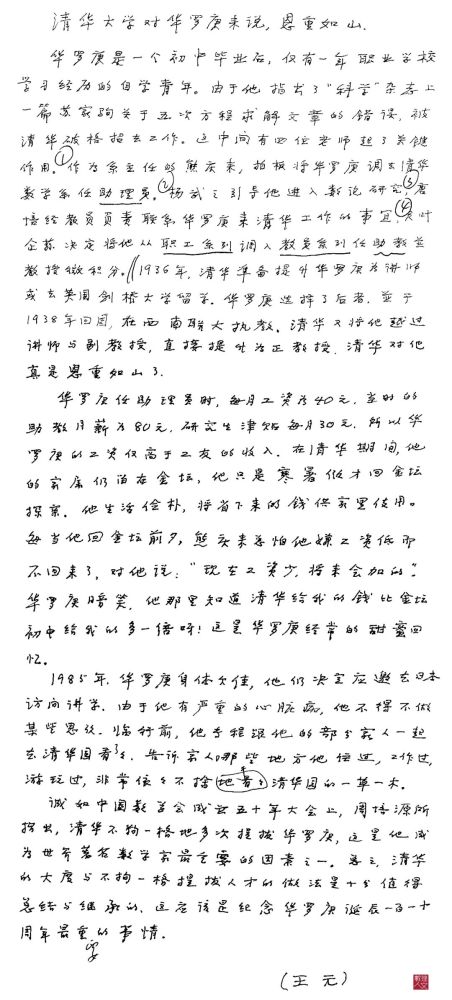 清华大学对华罗庚来说,恩重如山.
华罗庚是一个初中毕业后,仅有一年职业学校
学习经历的自学青年。由于他指出了"科学"杂志上
一篇苏家驹关于五次方程求解文章的错误,被
清华破格招去工作。这中间有四位老师起了关键
作用。①作为系主任的熊庆来,拍板将华罗庚调去清华
数学系任助理员。②杨武之引导他进入数论研究。③唐
培经教员负责联系华罗庚来清华工作的事宜。④叶
企荪决定将他从职工系列调入教员系列任助教並
教授微积分。∥1936年,清华准备提升华罗庚为讲师
或去英国剑桥大学留学.华罗庚选择了后者.並于
1938年回国,在西南联大执教.清华又将他越过
讲师与副教授,直接提升为正教授.清华对他
真是恩重如山了.
华罗庚任助理员时,每月工资为40元.当时的
助教月薪为80元.研究生津贴每月30元.所以华
罗庚的工资仅高于工友的收入.在清华期间,他
的家属仍留在金坛,他只是寒暑假才回金坛
探亲.他生活俭朴,将省下来的錢供家里使用。
每当他回金坛前夕,熊庆来养怕他嫌工资低而
不回来了,对他说:"现在工资少,将来会加的".
华罗庚暗笑.他那里知道清华给我的錢比金坛
初中给我的多一倍呀!这是华罗庚经常的甜蜜回
忆.
1985年.华罗庚身体欠佳,他仍决定应邀去日本
访问讲学.由于他有严重的心脏病,他不得不做
某些思考.临行前,他专程跟他的部分家人一起
去清华园看了看.告诉家人哪些地方他住过,工作过,
游玩过,非常依依不捨地看看清华园的一草一木.
诚如中国数学会成立五十年大会上,周培源所
指出,清华不拘一格地多次提拔华罗庚,这是他成
为世界著名数学家最重要的因素之一.总之,清华
的大度与不拘一格提拔人才的做法是十分值得
总结与继承的.这应该是纪念华罗庚诞辰一百一十
周年最重要的事情.
(王元)